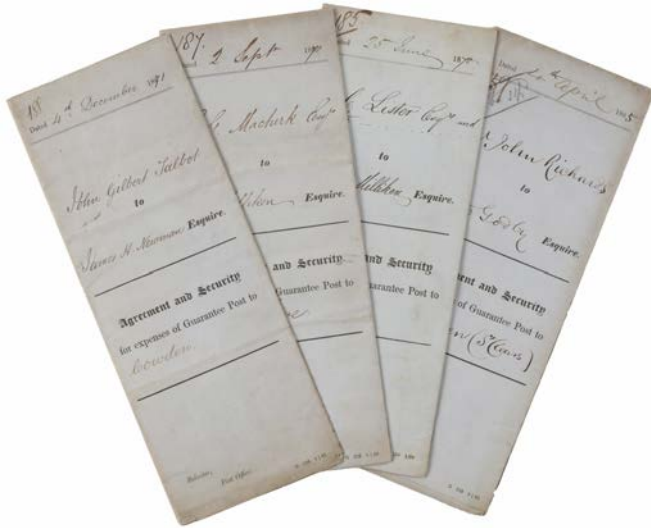 Dated 4th December 1871
John Gilbert Talbot
to
James H. Newman Esquire.
Agreement and Security
for expenses of Guarantee Post to
Cowden.
Solicitor,
Post Office.
187.
2 Sept 187
Macturk Esqre
to
Esquire.
and Security
Guarantee Post to
185
25 June 187
Lister Esqre and
to
Milliken Esquire.
and Security
Guarantee Post to
Dated April
John Richards
to
Godby Esquire.
and Security
of Guarantee Post to